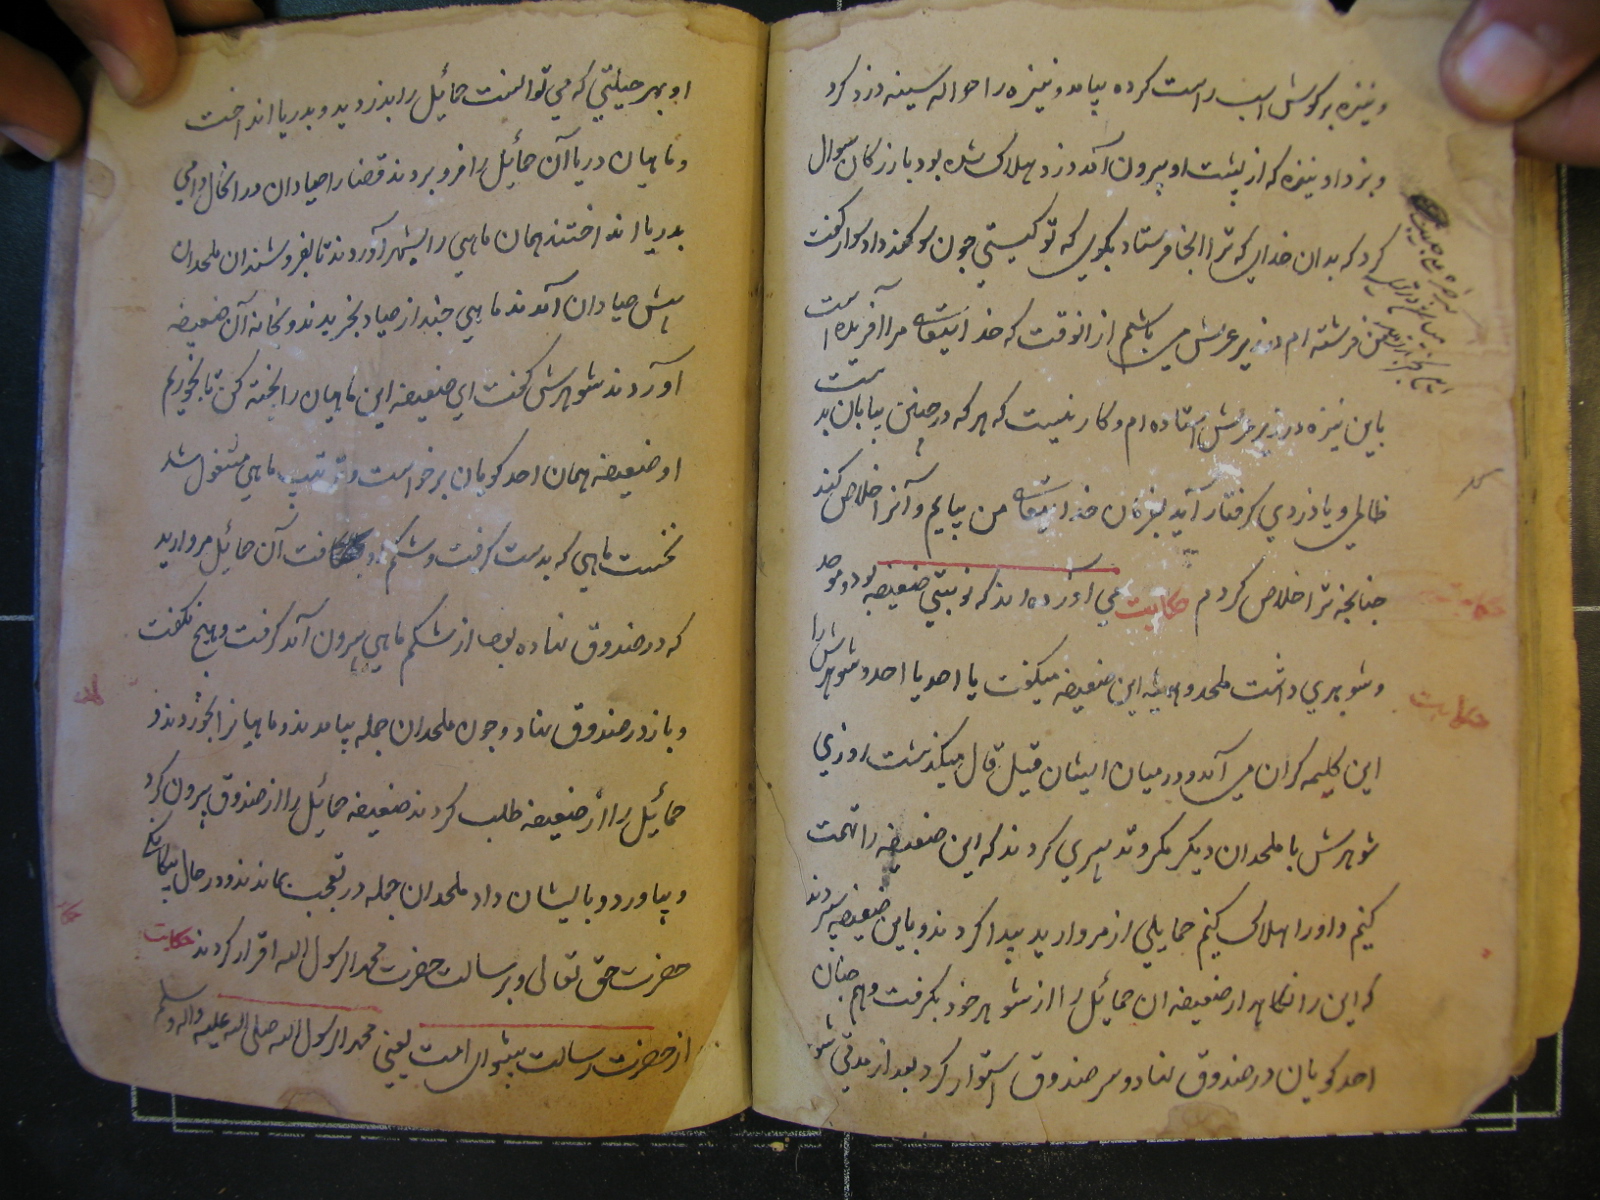 و نیزه بر گوش اسب راست کرده بیامد و نیزه را حواله سینه دزد کرد
و بزد او نیزه که از پشت او بیرون آمد دزد هلاک شده بود بازرگان سوال
کرد که بدان خدای که ترا اینجا فرستاد بگوی که تو کیستی چون سوکند داد سوار گفت
من فرشته ام در زیر عرش می باشم از انوقت که خدایتعالی مرا آفریده است
باین نیزه در زیر عرش استاده ام و کار نیست که هر که در چنین بیابان بدست
ظالمی و یا دزدی گرفتار آید بفرمان خدایتعالی من بیایم و آنرا خلاص کنم
چنانچه ترا خلاص کردم حکایت می آورده اند که نوبتی ضعیفه بود و موحد
و شوهری داشت ملحد و همیشه این ضعیفه میگفت یا احد یا احد و شوهرش را
این کلیمه گران می آمد و در میان ایشان قیل قال میگذشت روزی
شوهرش با ملحدان دیگر مکر و تدبیری کردند که این ضعیفه را تهمت
کنیم و او را هلاک کنیم حمایلی از مروارید پیدا کردند و باین ضعیفه سپردند
که این را نگاهدار ضعیفه ان حمایل را از شوهر خود بگرفت و هم چنان
احد گویان در صندوق نهاد و سر صندوق استوار کرد بعد از مدتی شوهر
حکایت
او بهر حیلتی که می توانست حمائیل را بدزدید و بدریا انداخت
و ماهیان دریا آن حمائیل را فرو بردند قضا را صیادان در انحال دامی
بدریا انداختند همان ماهی را بشهر آوردند تا بفروشند ان ملحدان
پیش صیادان آمدند ماهی چند از صیاد بخریدند و بخانه آن ضعیفه
آوردند شوهرش گفت ای ضعیفه این ماهیان را پخته کن تا بخوریم
او ضعیفه همان احد گویان برخواست و ترتیب ماهی مشغول شد
نخست ماهی که بدست گرفت و شکم او بشکافت آن حمائیل مروارید
که در صندوق نهاده بود از شکم ماهی بیرون آمد گرفت و هیچ نگفت
و باز در صندوق نهاد و چون ملحدان جمله بیامدند و ماهیانرا بخوردند و
حمائیل را از ضعیفه طلب کردند ضعیفه حمائیل را از صندوق بیرون کرد
و بیاورد و بایشان داد ملحدان جمله در تعجب بماندند و در حال بیگانگی
حضرت حق تعالی و برسالت حضرت محمد رسول الله اقرار کردند حکایت
از حضرت رسالت پیشوای امت یعنی محمد رسول الله صلی الله علیه و اله وسلم